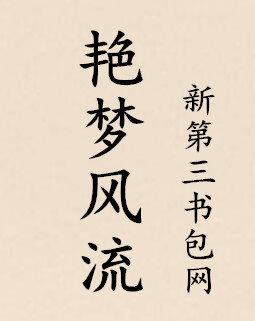 艳梦风流
新第三书包网